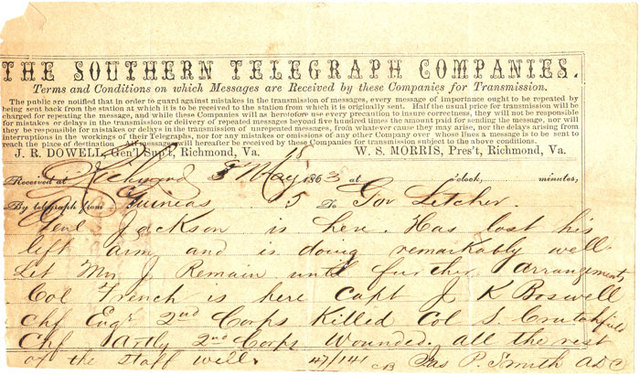 THE SOUTHERN TELEGRAPH COMPANIES.
Terms and Conditions on which Messages are Received by these Companies for Transmission.
The public are notified that in order to guard against mistakes in the transmission of messages, every message of importance ought to be repeated by
being sent back from the station at which it is to be received to the station from which it is originally sent. Half the usual price for transmission will be
charged for repeating the message, and while these Companies will as heretofore use every precaution to insure correctness, they will not be responsible
for mistakes or delays in the transmission or delivery of repeated messages beyond five hundred times the amount paid for sending the message, nor will
they be responsible for mistakes or delays in the transmission of unrepeated messages, from whatever cause they may arise, nor for delays arising from
interruptions in the workings of their Telegraphs, nor for any mistakes or omissions of any other Company over whose lines a message is to be sent to
reach the place of destination. All messages will hereafter be received by these Companies for transmission subject to the above conditions.
J. R. DOWELL, Gen'l Sup't, Richmond, Va. W. S. MORRIS, Pres't, Richmond, Va.
Received at Richmond May 5 1863 at o'clock, minutes,
By telegraph from Guineas 5 To Gov Letcher
Genl Jackson is here. Has lost his
left arm and is doing remarkably well
Let Mrs J Remain until further arrangements
Col French is here Capt J K Boswell
Chf Engr 2nd Corps Killed Col S. Crutchfield
Chf Artly 2nd Corps Wounded. all the rest
of the Staff well. 47/141 Jas P. Smith ADC